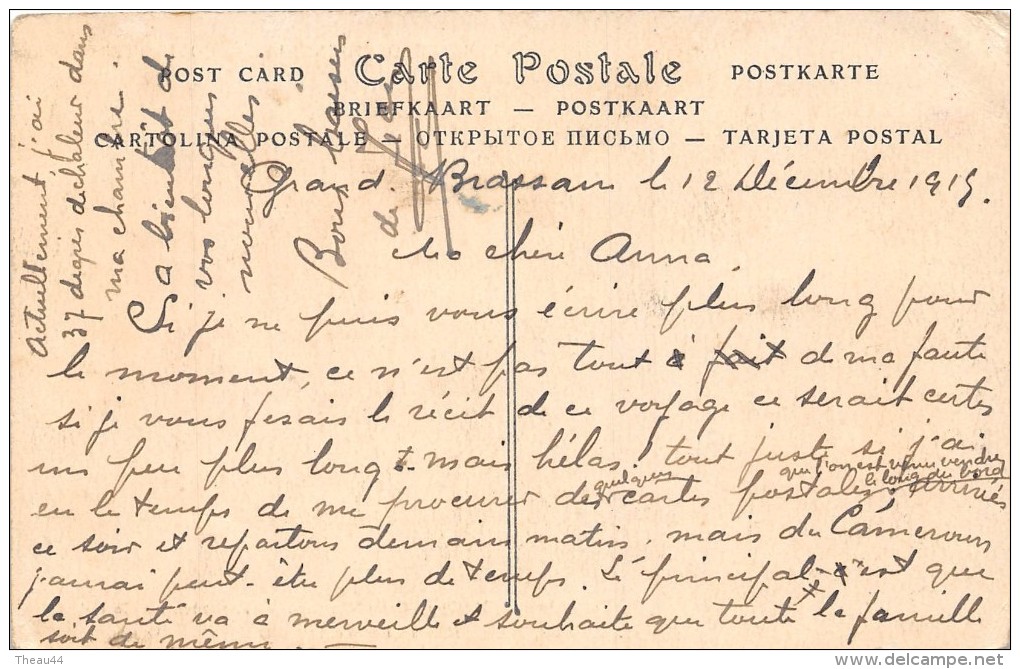 POST CARD Carte Postale POSTKARTE
BRIEFKAART — POSTKAART
CARTOLINA POSTALE — ОТКРЫТОЕ ПИСЬМО — TARJETA POSTAL
Grand. Bassam le 12 Décembre 1915.
Ma chère Anna,
Si je ne puis vous écrire plus long pour
le moment, ce n'est pas tout à fait de ma faute
si je vous fesais le récit de ce voyage ce serait certes
un peu plus long mais hélas! tout juste si j'ai
quelques que l'on est venu vendre
le long du bord
eu le temps de me procurer des cartes postales arrivés
ce soir et repartons demain matin, mais du Cameroun
j'aurai peut-être plus de temps. Le principal c'est que
la santé va à merveille et souhaite que toute la famille
soit de même.
Actuellement j'ai
37 degrés de chaleur dans
ma chambre.
A bientôt de
vos longues
nouvelles
Bons baisers
de
Theau44
www.delcampe.net